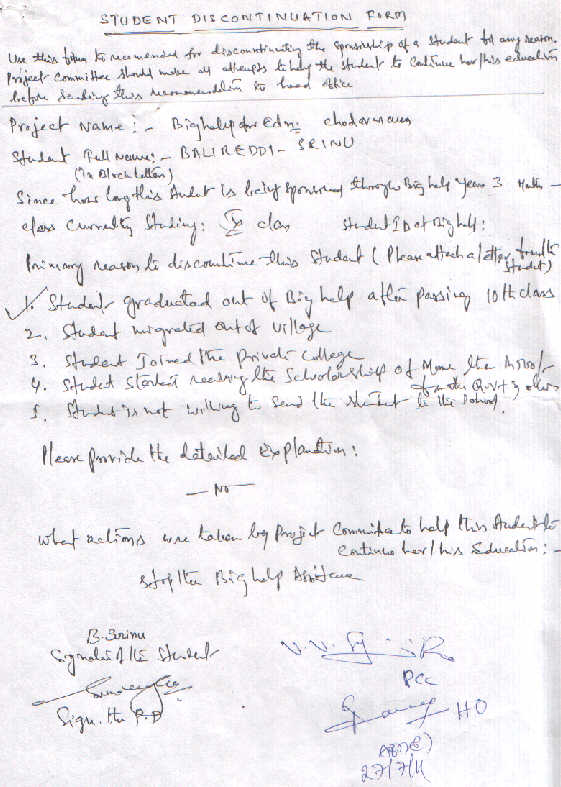 STUDENT DISCONTINUATION FORM
Use this form to recommended for discountinuting the sponsorship of a student for any reason.
Project committee should make all attempts to help the student to continue her/his education
before sending this recommendation to head office
Project Name:- Bighelp for Edn:
Student Full Name:- BALIREDDI- SRINU
(In Block letters)
Since how long this student is being sponsored through Big help years 3
class currently studing: class Student ID at Big help:
Primary reason to discountinue this Student (Please attach a letter from the
student)
1. Student graduated out of Big help after passing 10th class
2. Student migrated out of village
3. Student Joined the Private College
4. Student started receving the Scholarship of More the
from the Govt
5. is not willing to send the student to the school.
Please provide the detailed Explanation:
- No -
What actions were taken by Project Committee to help this student to
Continue her/his Education:-
Big help
B. Srinu
Signature of the Student
Sign. the
PCC
HO
27/7/11